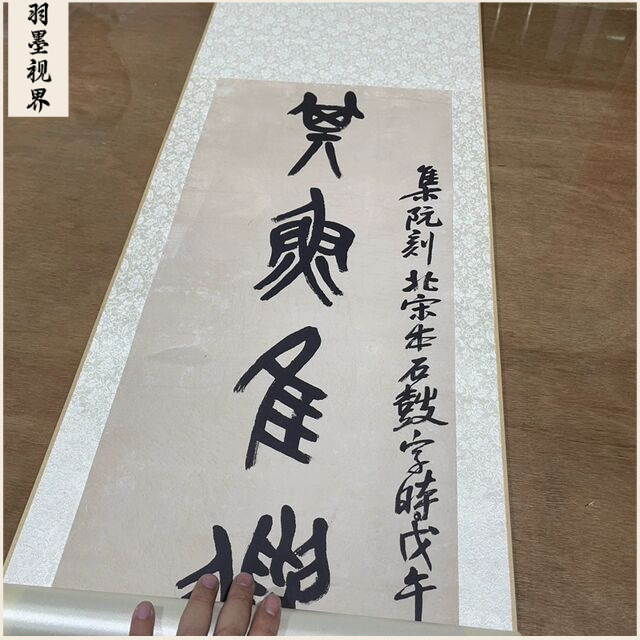 羽墨视界
集阮刻北宋本石鼓字時戊午
其魚隹